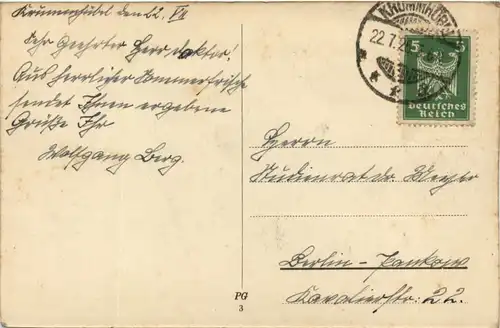 Krummhübel den 22. VII
Sehr Geehrter Herr Doktor!
Aus herrlicher Sommerfrische
sendet Ihnen ergebene
Grüße Ihr
Wolfgang Berg.
KRUMMHÜBEL
22.7.2
5 5
Deutsches
Reich
Herrn
Studienrat Dr. Meyer
Berlin - Pankow
Kavalierstr: 22.
PG
3